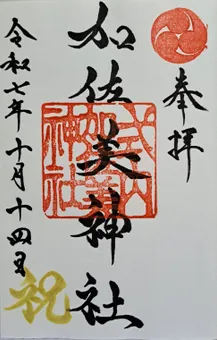 奉拝
加佐美神社
式内
加佐美
神社
令和七年十月十四日
祝